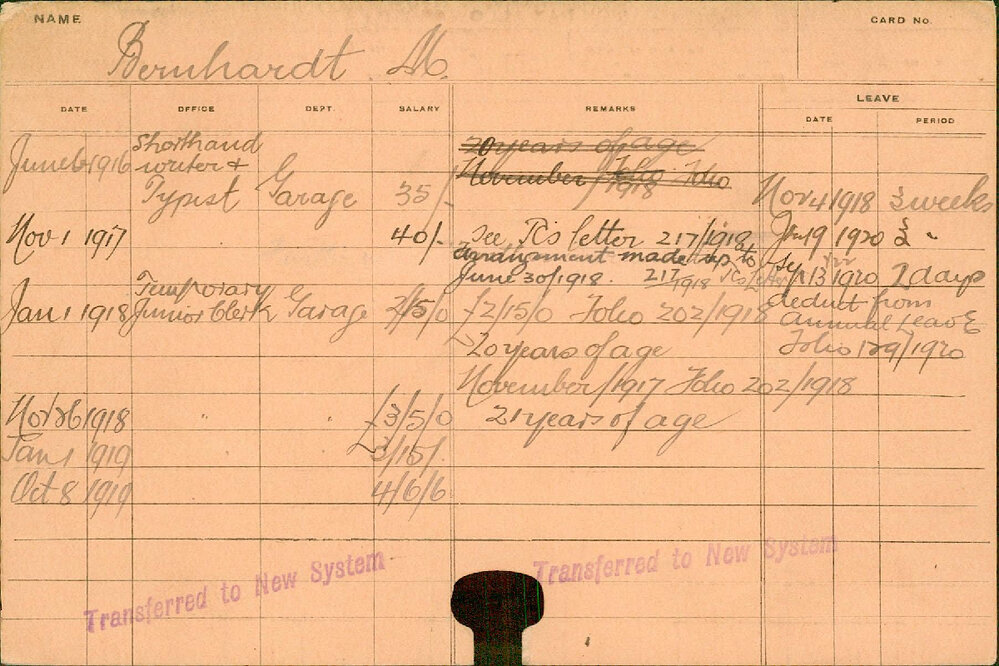 NAME
CARD No.
Bernhardt M.
DATE OFFICE DEPT. SALARY REMARKS LEAVE
DATE PERIOD
June 6 1916 Shorthand writer + Typist Garage 35/-
20 years of age
November Folio Folio
1918
Nov 4 1918 3 weeks
Nov 1 1917 40/- See TCs letter 217/1918
19 1920 3 "
arrangement made up to
June 30/1918. 217/1918 TCs letter
Sep 13 1920 2 days
Jan 1 1918 Temporary Junior Clerk Garage 2/15/0 £2/15/0 Folio 202/1918
deduct from
annual Leave
Folio 129/1920
20 years of age
November/1917 Folio 202/1918
Nov 26 1918 " " £3/5/0 21 years of age
Jan 1 1919 £3/15/.
Oct 8 1919 4/6/6
Transferred to New System
Transferred to New System